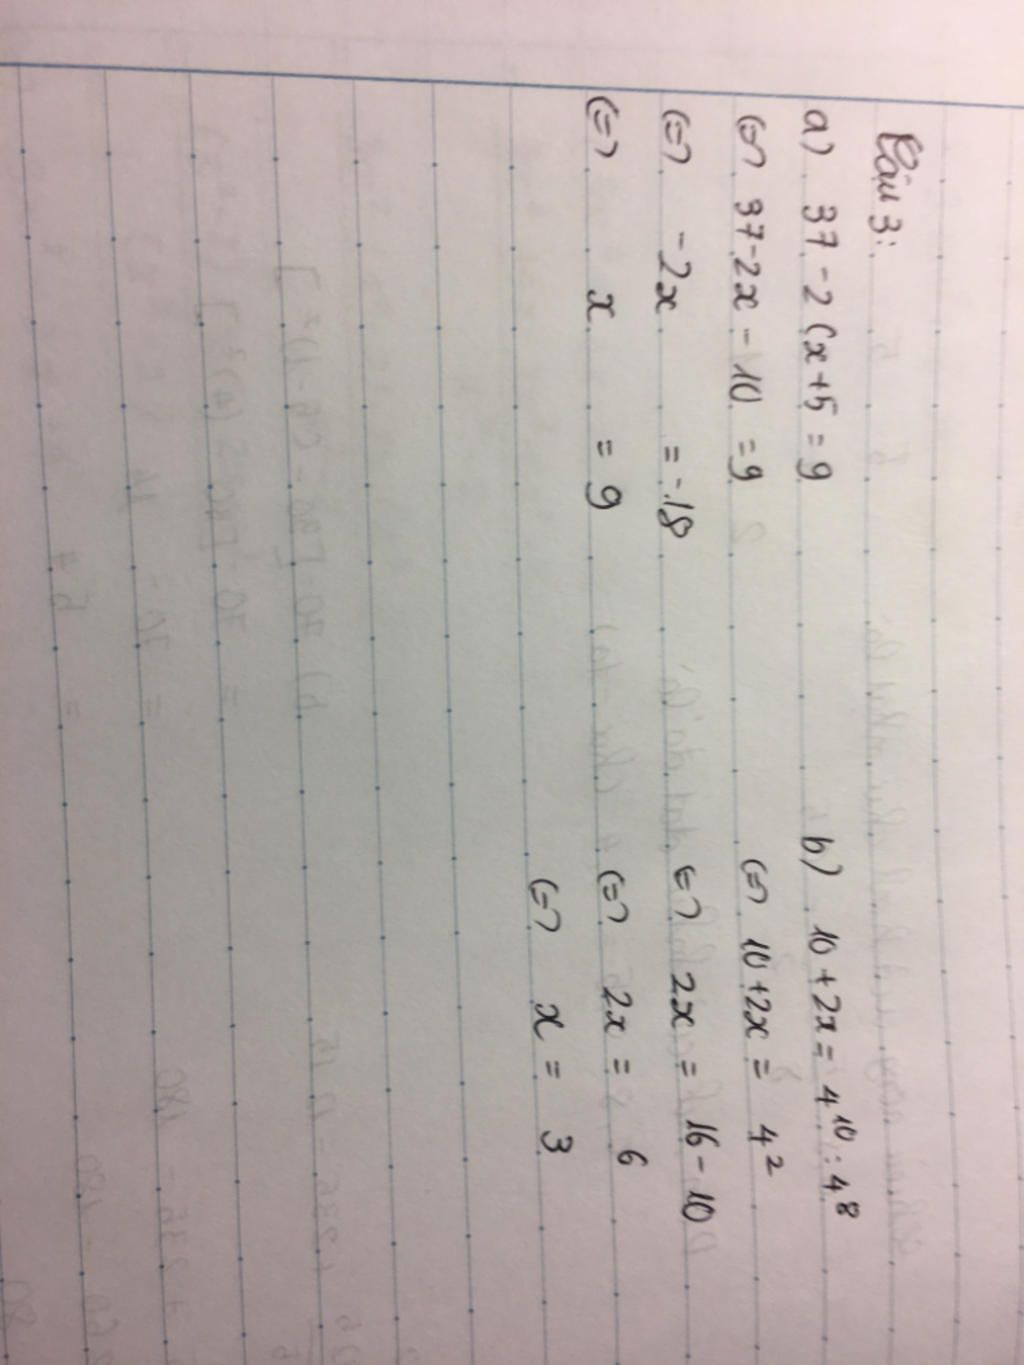 Câu 3:
a) 37 - 2 (x+5 = 9
(=) 37-2x - 10 = 9
(=) -2x = -18
(=) x = 9
b) 10 + 2x = 4¹⁰ : 4⁸
(=) 10+2x = 4²
(=) 2x = 16 - 10
(=) 2x = 6
(=) x = 3